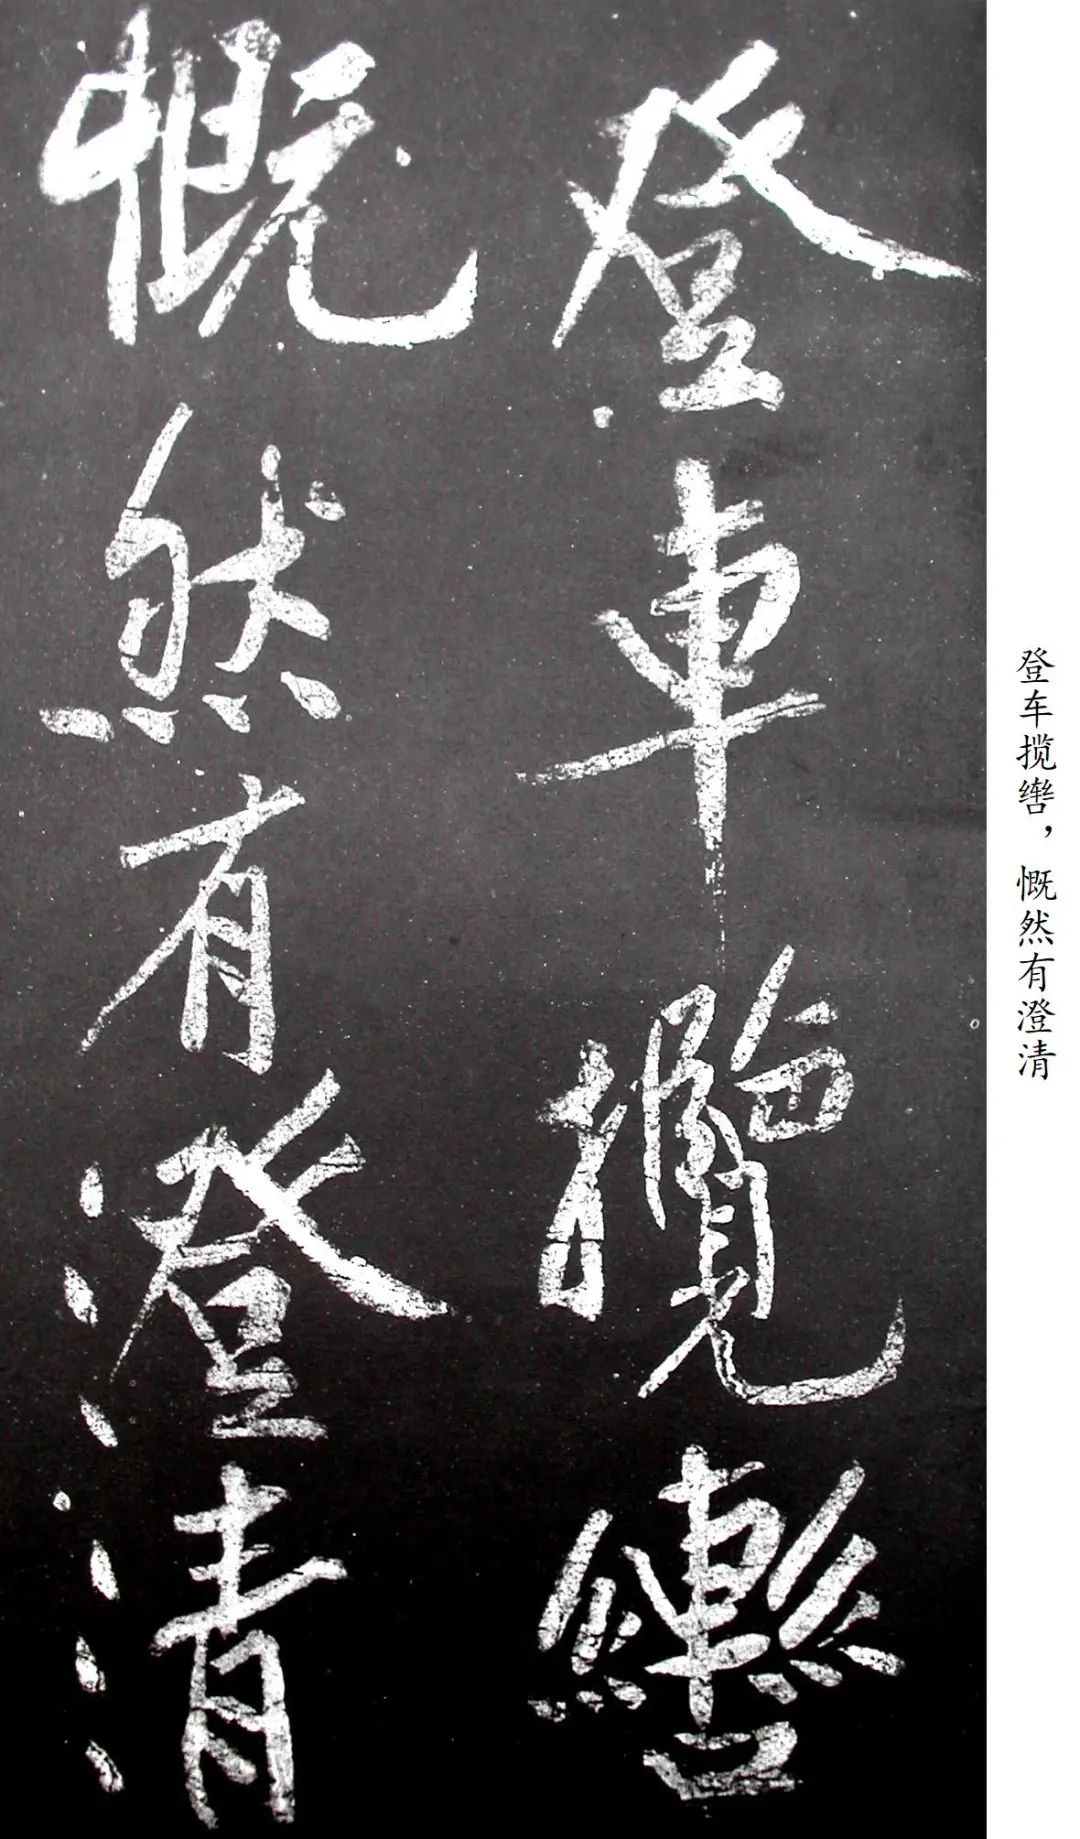 登車攬轡
慨然有澄清
登车揽辔，慨然有澄清